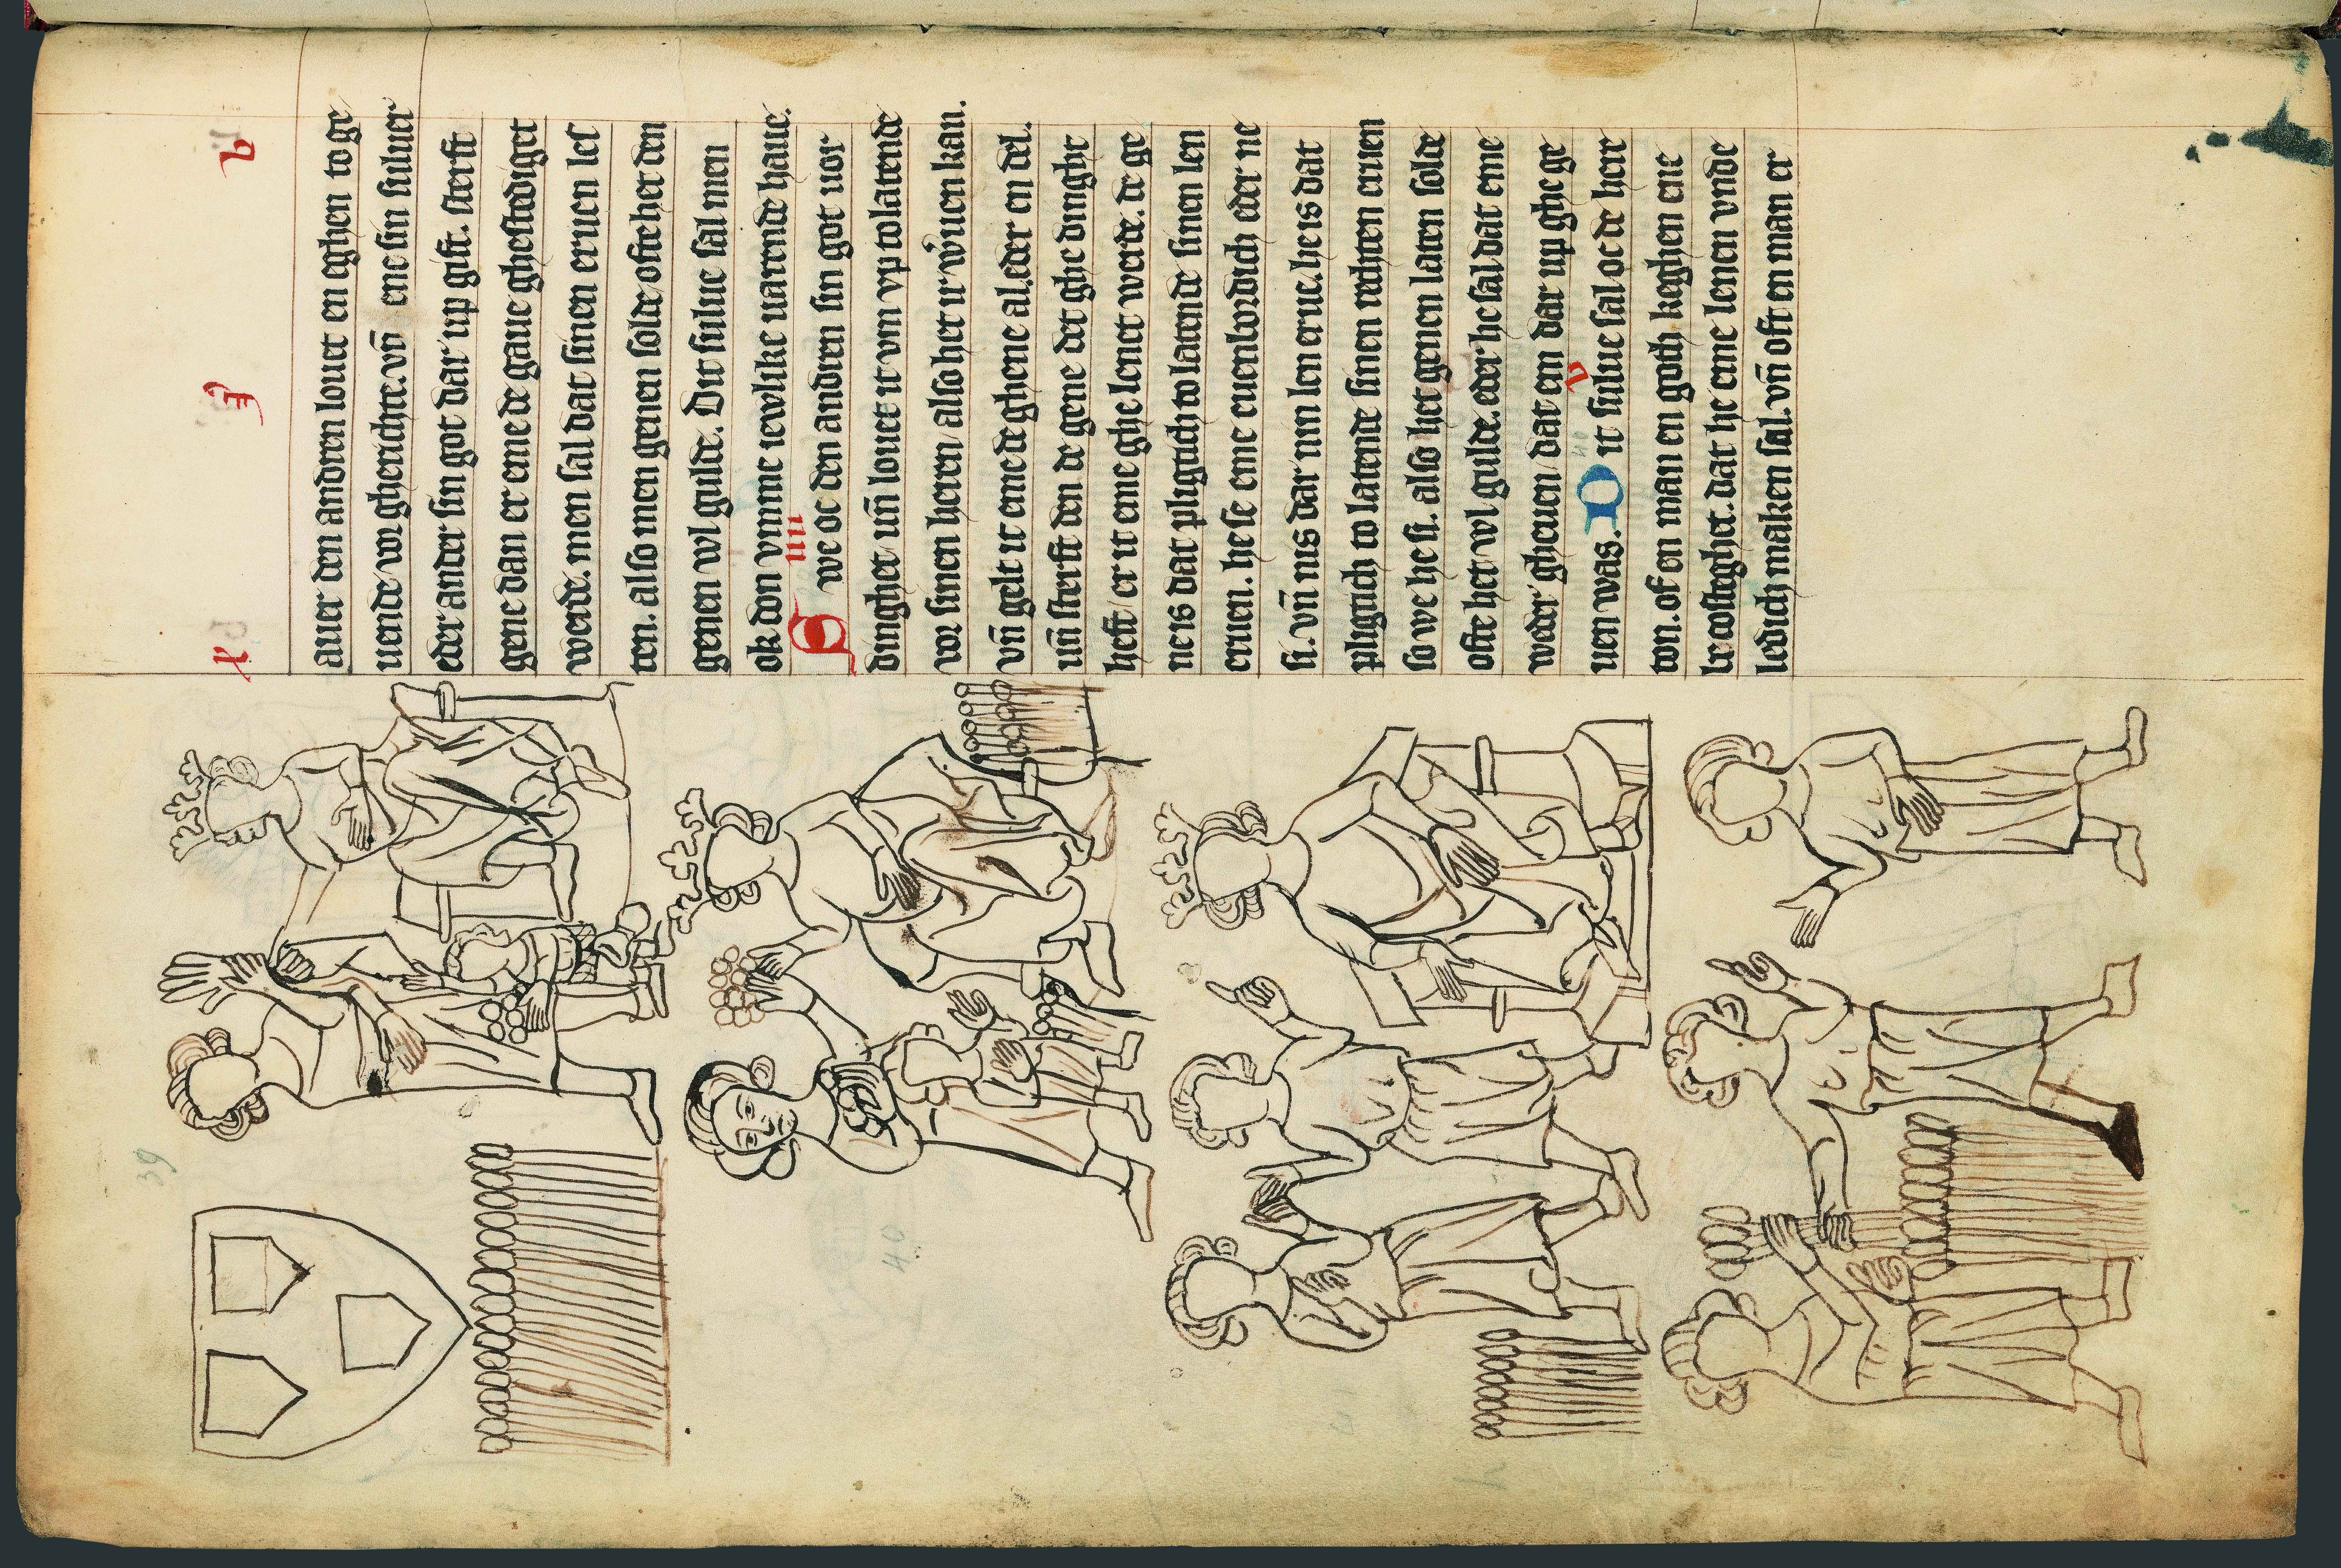 x i b
auer den andren louet en eghen to ge
uende vor gherichte. vn̄ eme sin suluer
eder ander sin got dar up gift. sterft
gene dan er eme de gaue ghestediget
werde. men sal dat sinen eruen les
ten. also men genen solde ofte het den
genen wl gulde. Dit sulue sal men
ok don vmme iewlike uarende haue.
iiii
Swe oc den andren sin got uor
dinghet un̄ louet it vm vp to latende
vor sinen heren/ also het ir wuen kan.
vn̄ gelt it eme de ghene al. eder en del.
un̄ sterft den de gene det ghe dinght
heft/ er it eme ghe lenet werde. de ge
ne is dat pligtich to latende sinen len
eruen. he se eme euenbordich eder ne
si. vn̄ nis dar nin len erue. he is dat
pligtich to latende sinen rechten eruen
so we he si. also het genen laten solde
ofte het wl gulde. eder he sal dat eme
weder gheuen/ dat em dar up ghe ge
v
uen was. Dit sulue sal oc de herr
don. of en man en goth keghen ene
be costeghet. dat he eme lenen vnde
ledich maken sal. vn̄ oft en man er
39
40